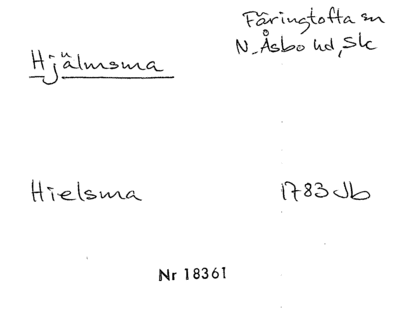 Färingtofta sn
Hjälmsma
N. Åsbo hd, Sk
Hielsma 1783 Jb
Nr 18361